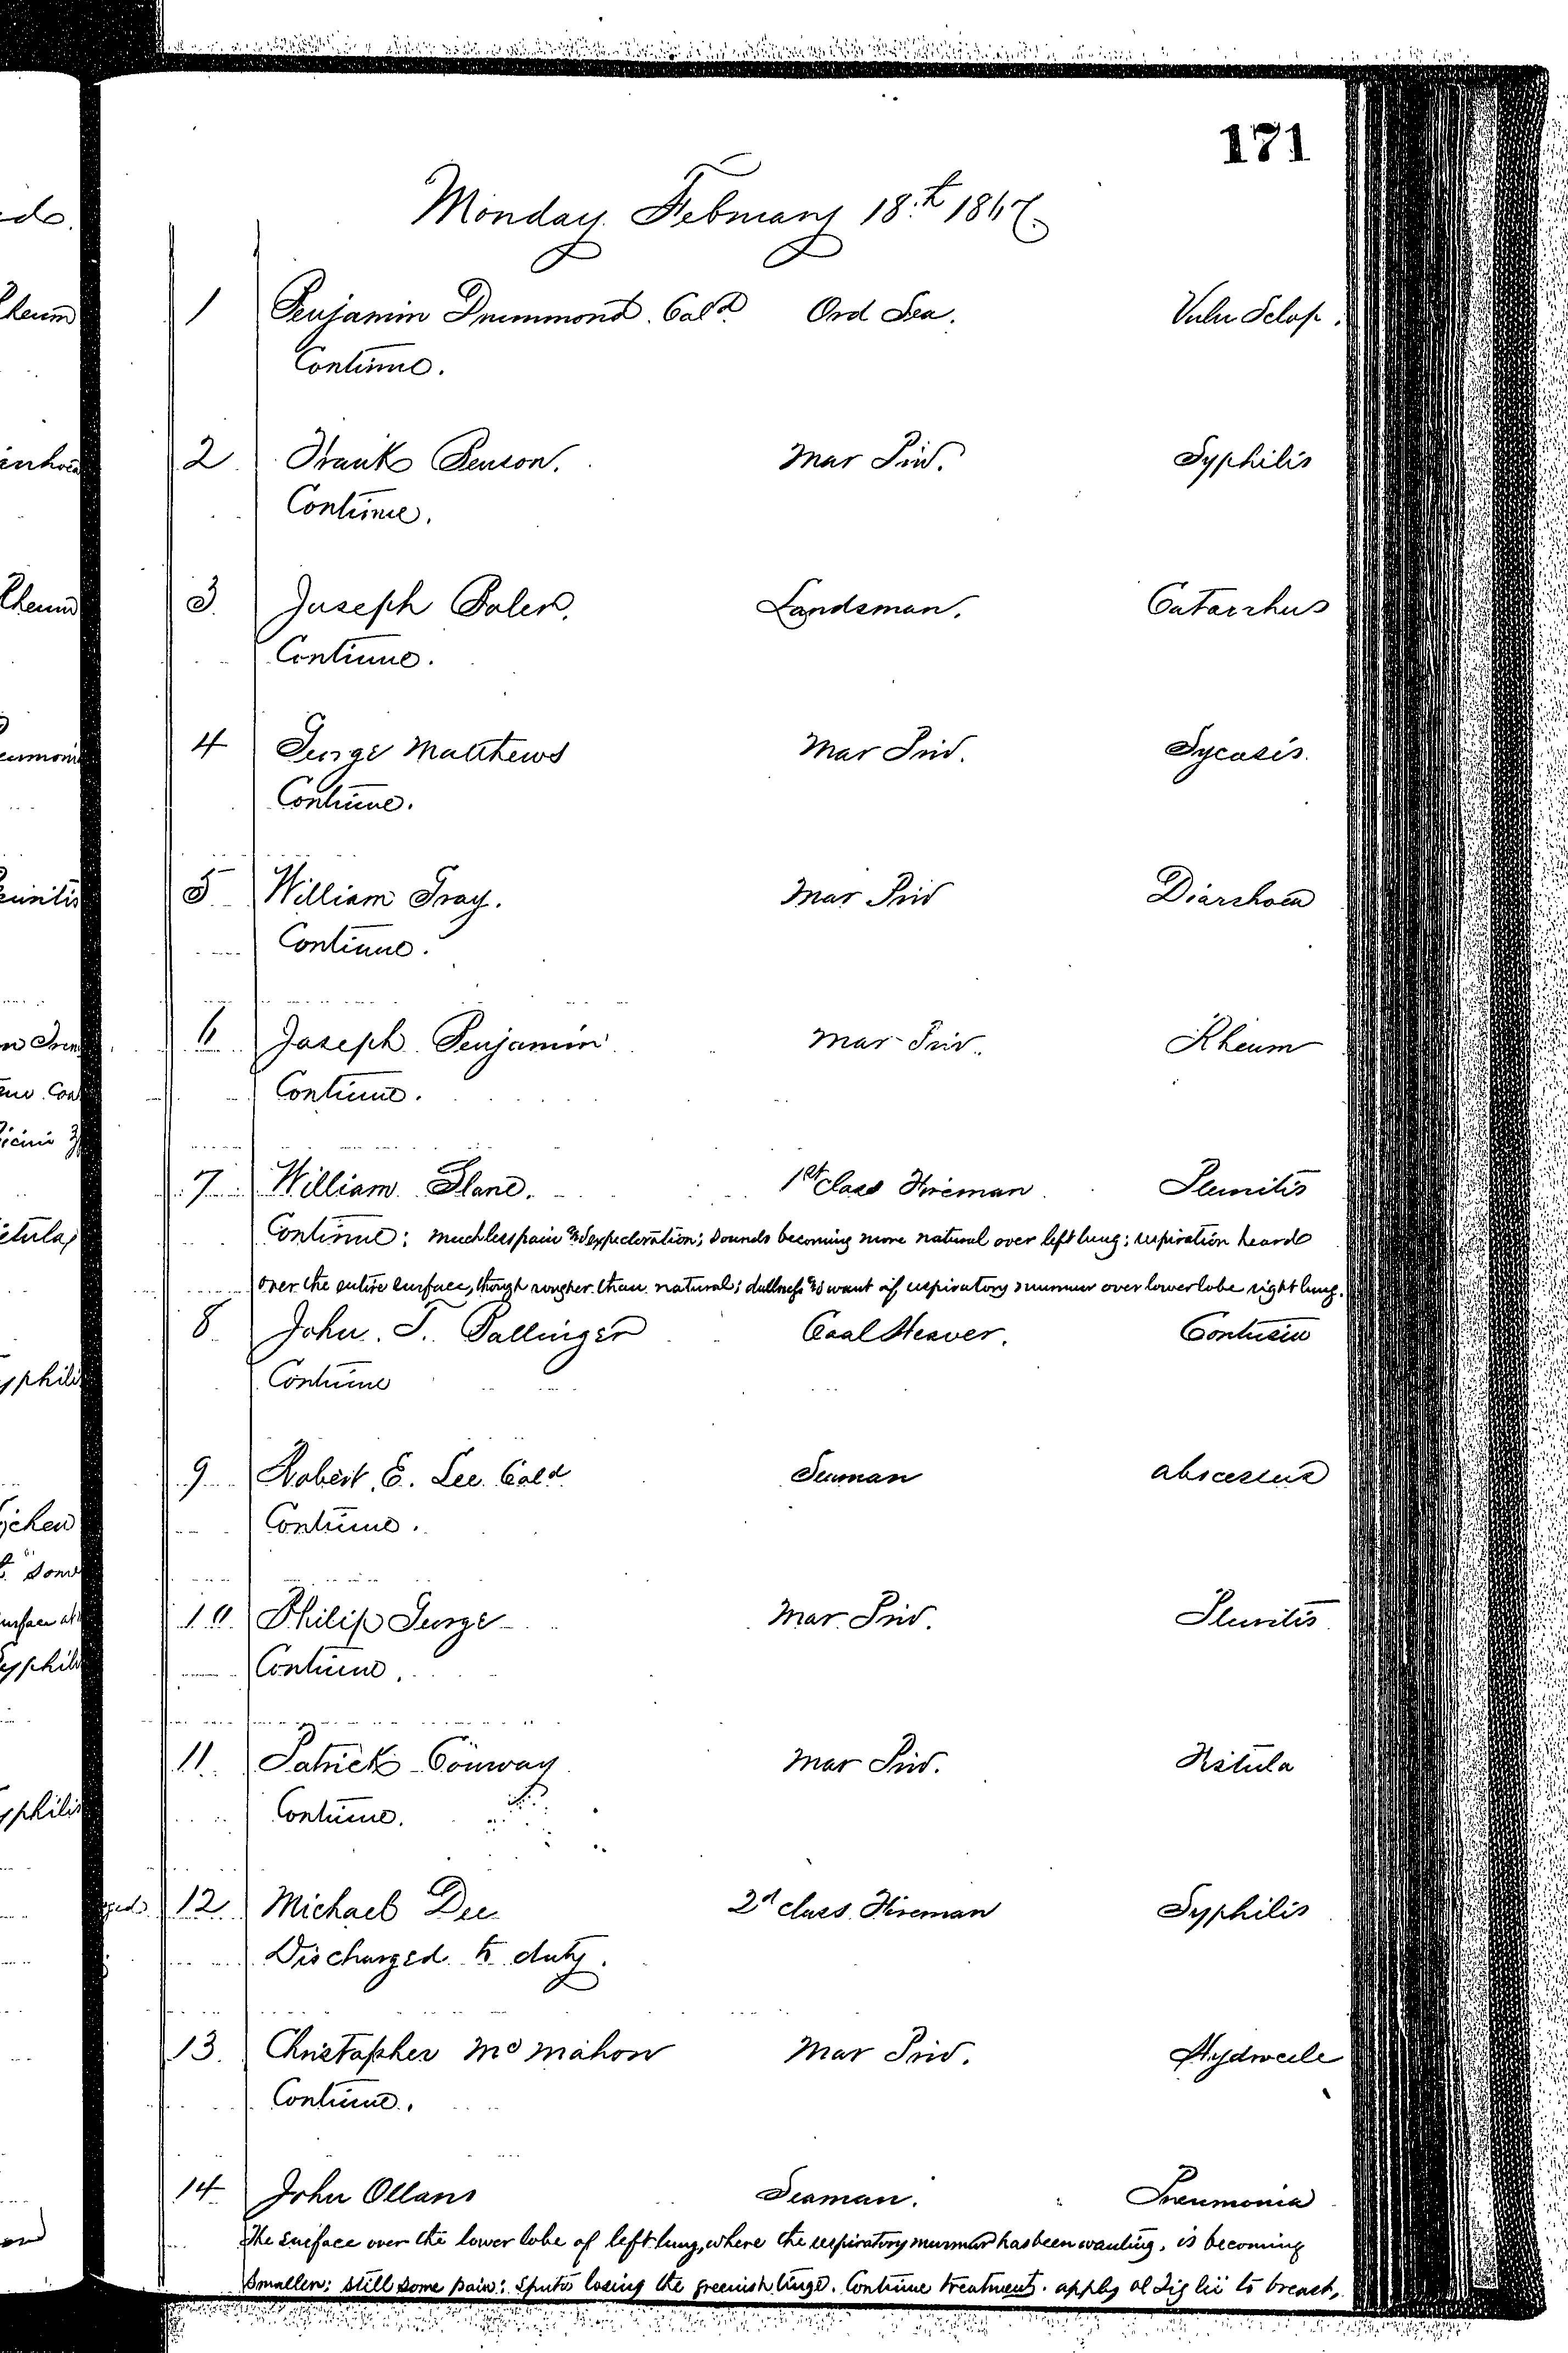 171
Monday February 18th 1867.
1 Benjamin Drummond. Cold Ord Sea. Vuln Sclop.
Continue.
2 Frank Benson. Mar Priv. Syphilis
Continue.
3 Joseph Landsman. Catarrhus
Continue.
4 George Matthews Mar Priv. Sycosis.
Continue.
5 William Gray. Mar Priv Diarrhoea
Continue.
6 Joseph Benjamin Mar Priv. Rheum
Continue.
7 William Slane. 1st class Fireman Pleuritis
Continue: much less pain and expectoration; sounds becoming more natural over left lung; respiration heard
over the entire surface, though rougher than natural; dullness and want of respiratory murmur over lower lobe right lung.
8 John. T. Ballinger Coal Heaver. Contusio
Continue
9 Robert. E. Lee Cold Seaman abscessus
Continue.
10 Philip George Mar Priv. Pleuritis
Continue.
11. Patrick Conway Mar Priv. Fistula
Continue.
12 Michael Dee 2d class Fireman Syphilis
Discharged to duty.
13. Christopher McMahon Mar Priv. Hydrocele
Continue.
14 John Ollans Seaman. Pneumonia
The surface over the lower lobe of left lung, where the respiratory murmur has been wanting, is becoming
smaller; still some pain: sputa losing the greenish tinge. Continue treatment. apply ol Tiglii to breast.